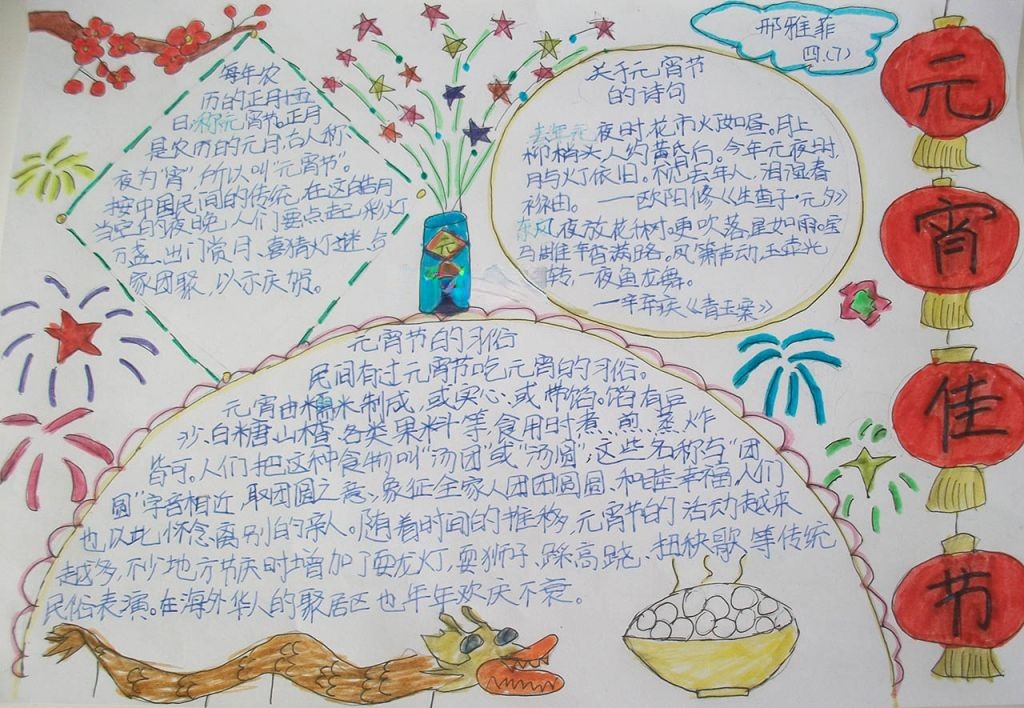 邢雅菲
四.(7)
每年农
历的正月十五
日,称元宵节,正月
是农历的元月,古人称
夜为"宵",所以叫"元宵节"。
按中国民间的传统,在这皓月
当空的夜晚,人们要点起彩灯
万盏、出门赏月、喜猜灯谜、合
家团聚,以示庆贺。
元
关于元宵节
的诗句
去年元夜时,花市火如昼。月上
柳梢头,人约黄昏后。今年元夜时,
月与灯依旧。不见去年人,泪湿春
衫袖。——欧阳修《生查子·元夕》
东风夜放花千树。更吹落、星如雨。宝
马雕车香满路。风箫声动,玉壶光
转,一夜鱼龙舞。
——辛弃疾《青玉案》
元宵佳节
元宵节的习俗
民间有过元宵节吃元宵的习俗。
元宵由糯米制成,或实心、或带馅。馅有豆
沙、白糖、山楂、各类果料等,食用时煮、煎、蒸、炸
皆可。人们把这种食物叫"汤团"或"汤圆",这些名称与"团
圆"字音相近,取团圆之意、象征全家人团团圆圆、和睦幸福,人们
也以此怀念离别的亲人。随着时间的推移,元宵节的活动越来
越多,不少地方节庆时增加了耍龙灯、耍狮子、踩高跷、扭秧歌等传统
民俗表演。在海外华人的聚居区也年年欢庆不衰。